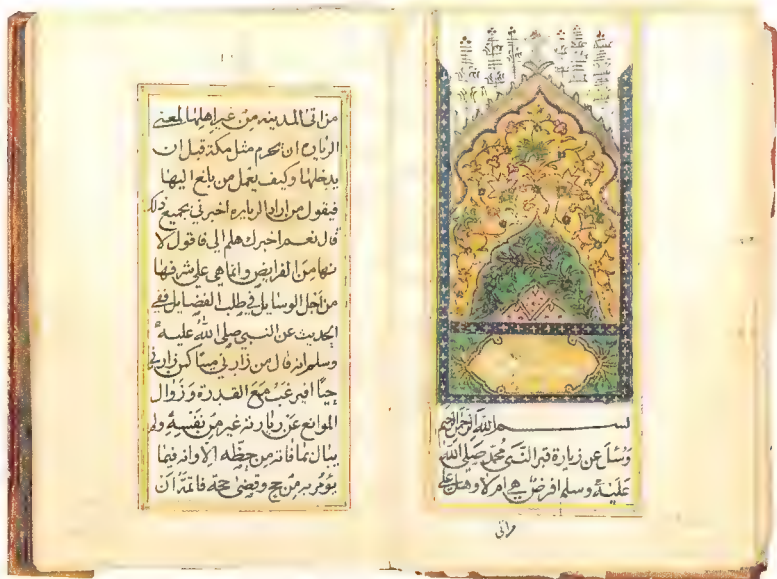 بسم الله الرحمن الرحيم
وسئل عن زيارة قبر النبي محمد صلى الله
عليه وسلم افرض هي ام لا وهل على
من اتى المدينه من غير اهلها لمعنى
الزياره ان يحرم مثل مكة قبل ان
يدخلها وكيف يعمل من بلغ اليها
فيقول من اراد الزياره اخبرني بجميع ذلك
قال نعم اخبرك هلم الي فاقول لا
نها من الفرايض وانما هي على شرفها
من اجل الوسايل في طلب الفضايل ففي
الحديث عن النبي صلى الله عليه
وسلم انه قال من زارني ميتا كمن زارني
حيا افيرغب مع القدرة وزوال
الموانع عن زيارته غير من نفسه ولم
يبال بما فاته من حظه الاوانه فيما
يؤمر به من حج وقضى حجه فاتمه ان